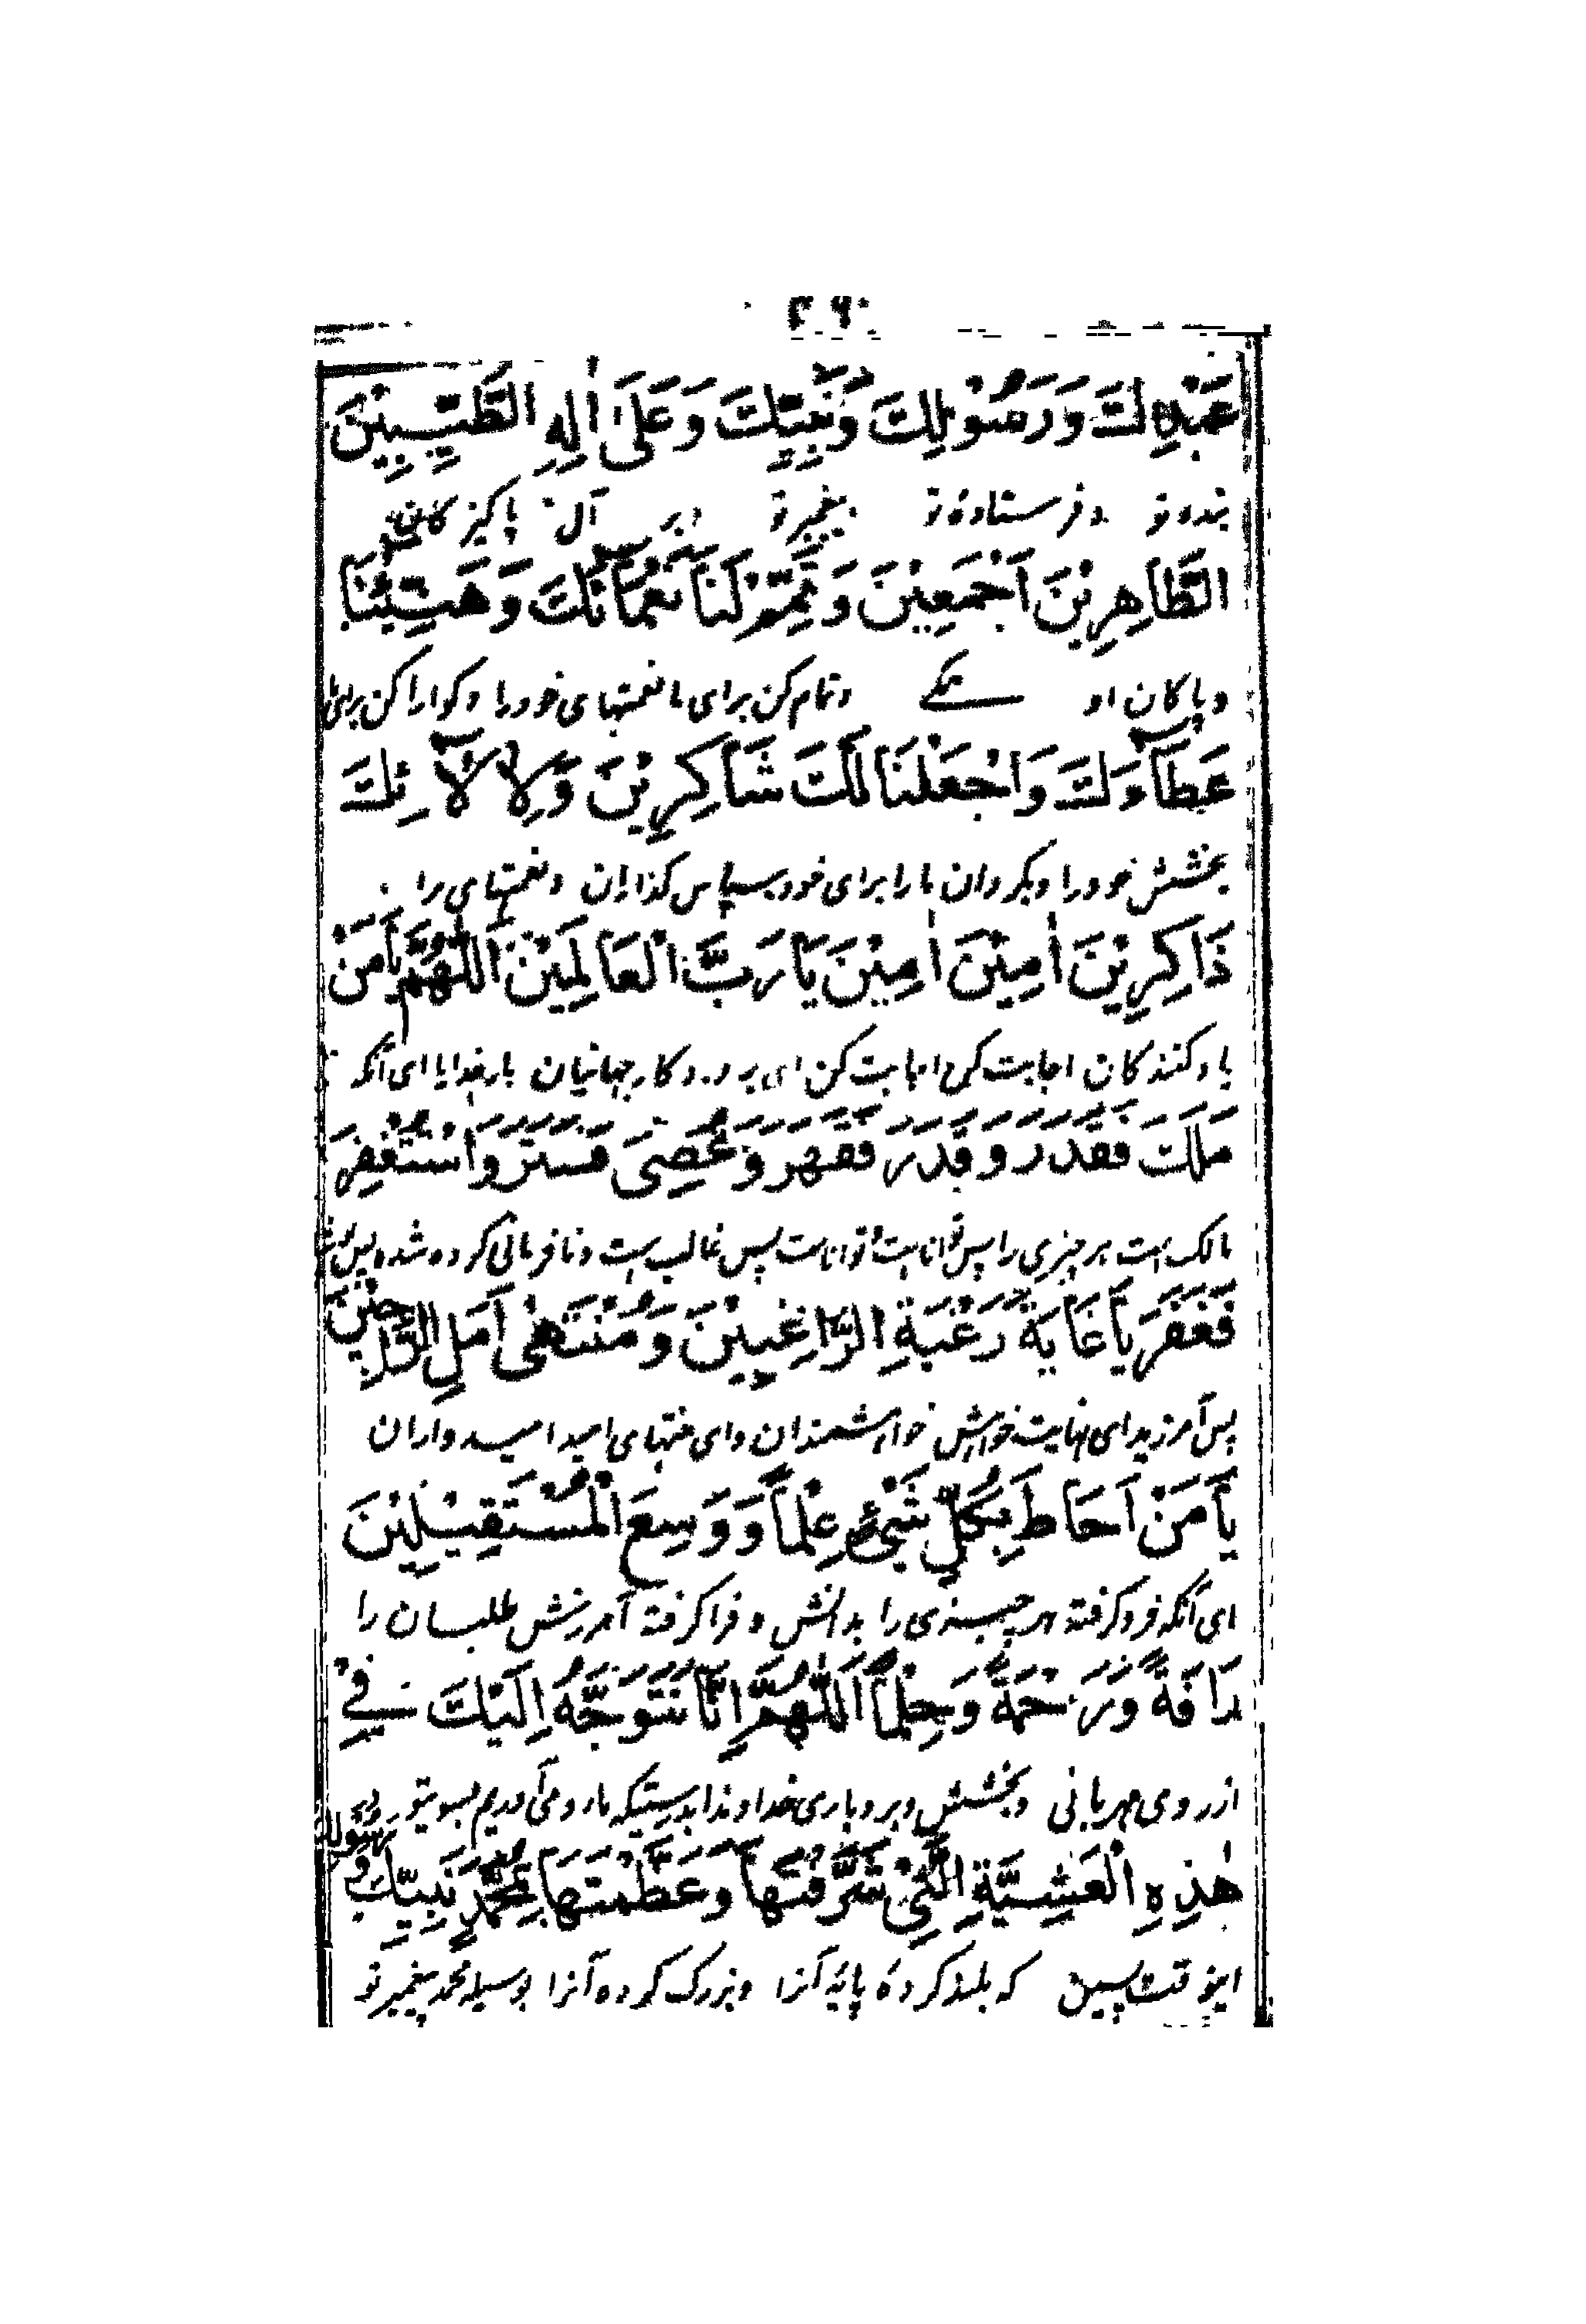 ۲۶۰
عَبْدِكَ وَرَسُوْلِكَ وَنَبِيِّكَ وَعَلىٰ اٰلِهِ الطَّيِّبِيْنَ
بنده تو و فرستادهٔ تو پیغمبر تو و بر آل پاکیزکان
الطَّاهِرِيْنَ اَجْمَعِيْنَ وَتَمِّمْ لَنَا نَعْمَائَكَ وَهَنِّئْنَا
و پاکان او همکے و تمام کن برای ما نعمتهای خود را و کوارا کن برای
عَطَآءَكَ وَاجْعَلْنَا لَكَ شَاكِرِيْنَ وَلِاٰلَآئِكَ
بخشش خود را و بکردان ما را برای خود سپاس کذاران و نعمتهای را
ذَاكِرِيْنَ اٰمِيْنَ اٰمِيْنَ يَا رَبَّ الْعَالَمِيْنَ اَللّٰهُمَّ يَا مَنْ
یاد کنندکان اجابت کن اجابت کن ای پروردکار جهانیان بار خدایا ای آنکه
مَلَكَ فَقَدَرَ وَقَدَرَ فَقَهَرَ وَعُصِىَ فَسَتَرَ وَاسْتُغْفِرَ
مالک است هر چیزی را پس توانا است توانا است پس غالب است و نافرمانی کرده شده پس
فَغَفَرَ يَا غَايَةَ رَغْبَةِ الرَّاغِبِيْنَ وَمُنْتَهٰى اَمَلِ الرَّاجِيْنَ
پس آمرزید ای نهایت خواهش خواهشمندان و ای منتهای امید امیدواران
يَا مَنْ اَحَاطَ بِكُلِّ شَيْئٍ عِلْمًا وَوَسِعَ الْمُسْتَقِيْلِيْنَ
ای آنکه فرو کرفته هر چیزی را بدانش و فرا کرفته آمرزش طلبان را
رَافَةً وَرَحْمَةً وَحِلْمًا اَللّٰهُمَّ اِنَّا نَتَوَجَّهُ اِلَيْكَ فِيْ
از روی مهربانی و بخشش و بردباری خداوندا بدرستیکه ما رو می آوریم بسویتو در
هٰذِهِ الْعَشِيَّةِ الَّتِيْ شَرَّفْتَهَا وَعَظَّمْتَهَا بِمُحَمَّدٍ نَبِيِّكَ وَرَسُوْلِكَ
اینوقت پسین که بلند کردهٔ پایهٔ آنرا و بزرک کرده آنرا بوسیله محمد پیغمبر تو